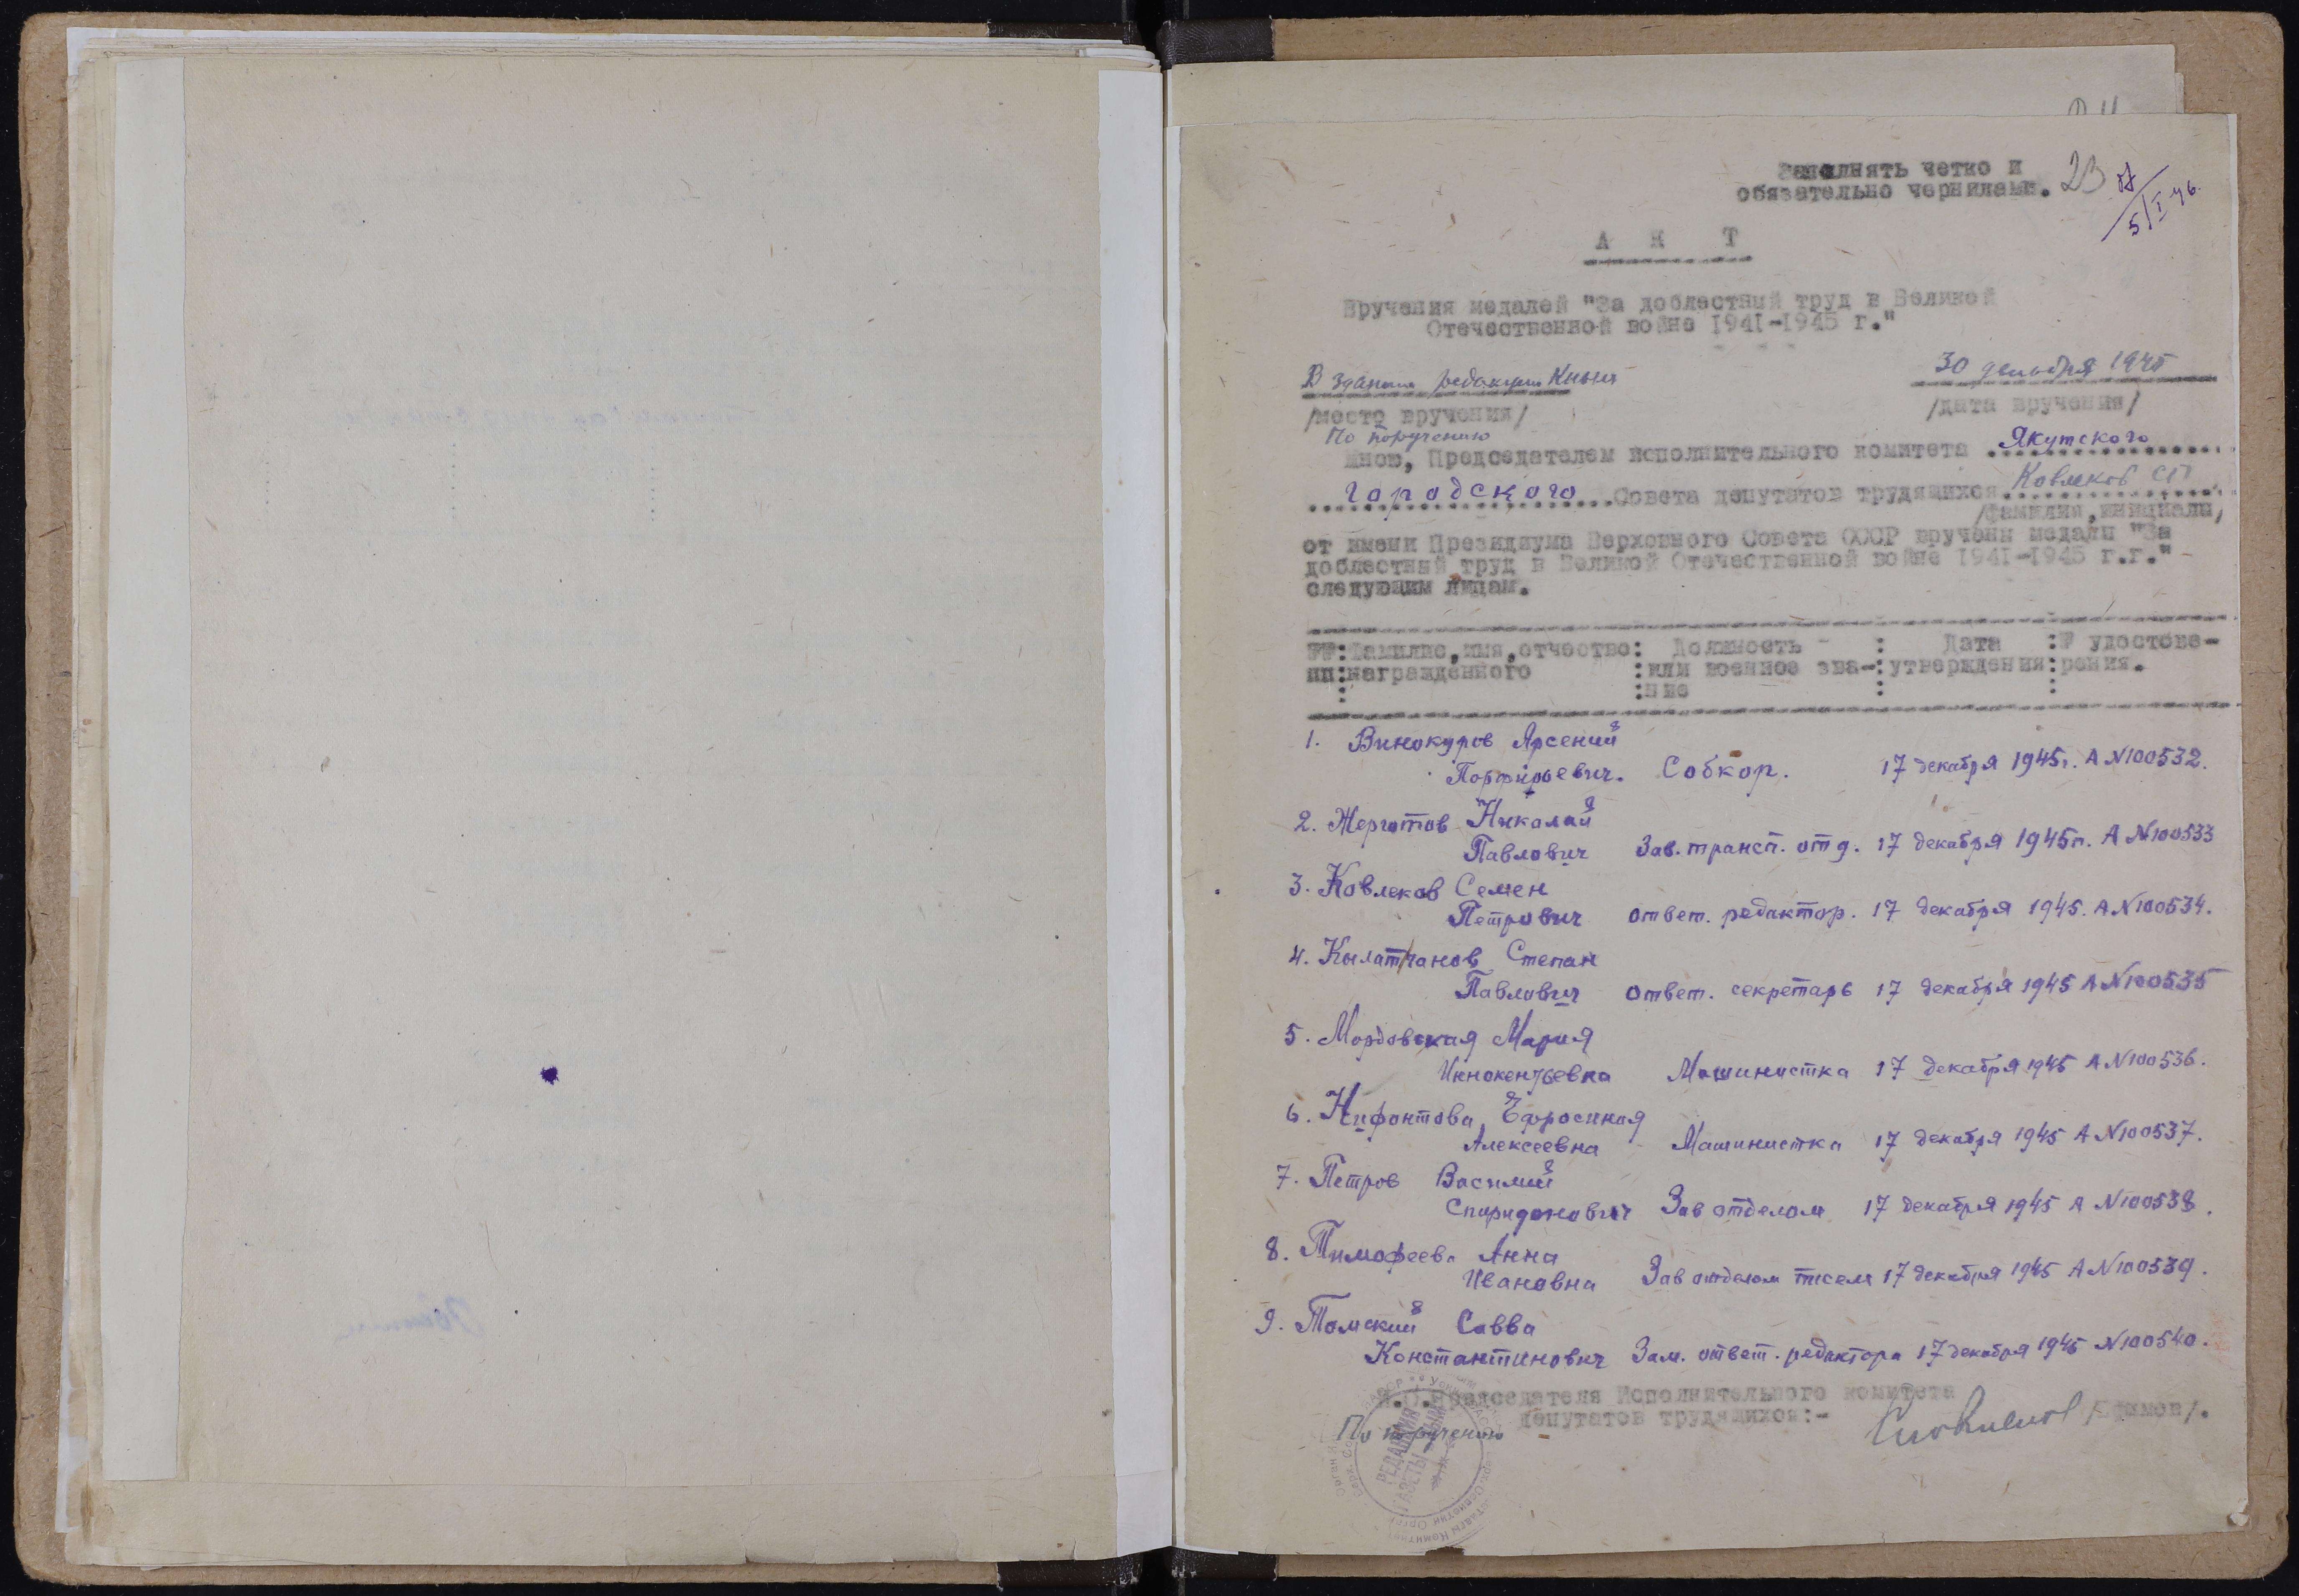 Заполнять четко и
обязательно чернилами.
23
5/I-46.
А К Т
Вручения медалей "За доблестный труд в Великой
Отечественной войне 1941-1945 г."
В здании редакции Кыым
30 декабря 1945
/место вручения/
/дата вручения/
По поручению
мною, Председателем исполнительного комитета Якутского
городского Совета депутатов трудящихся Ковлеков СП
/фамилия, инициалы,
от имени Президиума Верховного Совета СССР вручены медали "За
доблестный труд в Великой Отечественной войне 1941-1945 г.г."
следующим лицам.
№№:Фамилия, имя, отчество: Должность : Дата :№ удостове-
пп:награжденного :или военное зва-:утверждения:рения.
:ние
1. Винокуров Арсений
Порфирьевич. Собкор. 17 декабря 1945г. А №100532.
2. Жерготов Николай
Павлович Зав. трансп. отд. 17 декабря 1945г. А №100533
3. Ковлеков Семен
Петрович ответ. редактор. 17 декабря 1945. А №100534.
4. Кылатчанов Степан
Павлович ответ. секретарь 17 декабря 1945 А №100535
5. Мордовская Мария
Иннокентьевна Машинистка 17 декабря 1945 А №100536.
6. Нифонтова Ефросиния
Алексеевна Машинистка 17 декабря 1945 А №100537.
7. Петров Василий
Спиридонович Зав отделом 17 декабря 1945 А №100538.
8. Тимофеева Анна
Ивановна Зав отделом писем 17 декабря 1945 А №100539.
9. Томский Савва
Константинович Зам. ответ. редактора 17 декабря 1945 №100540.
И.О.Председателя Исполнительного комитета
депутатов трудящихся:- /Ефимов/.
По поручению
РЕДАКЦИЯ
ГАЗЕТЫ